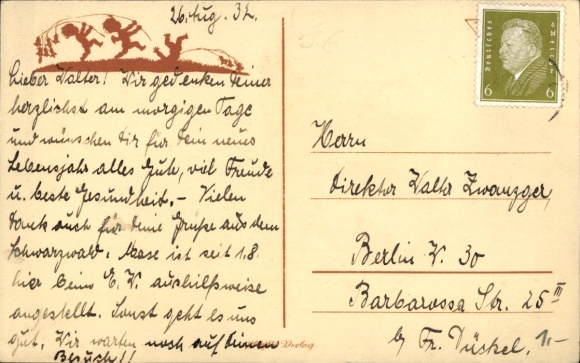 26. Aug. 32.
Lieber Walter! Wir gedenken Deiner
herzlichst am morgigen Tage
und wünschen Dir für Dein neues
Lebensjahr alles Gute, viel Freude
u. beste Gesundheit. – Vielen
Dank auch für Deine Grüße aus dem
Schwarzwald. Mase ist seit 1.8.
hier beim E. W. aushilfsweise
angestellt. Sonst geht es uns
gut. Wir warten noch auf Deinen
Besuch!!
Verlag
Deutsches Reich
6 6
Herrn
Direktor Walter Zwanzger,
Berlin W. 30
Barbarossa Str. 25 III
b/ Fr. Düskel.
1.-